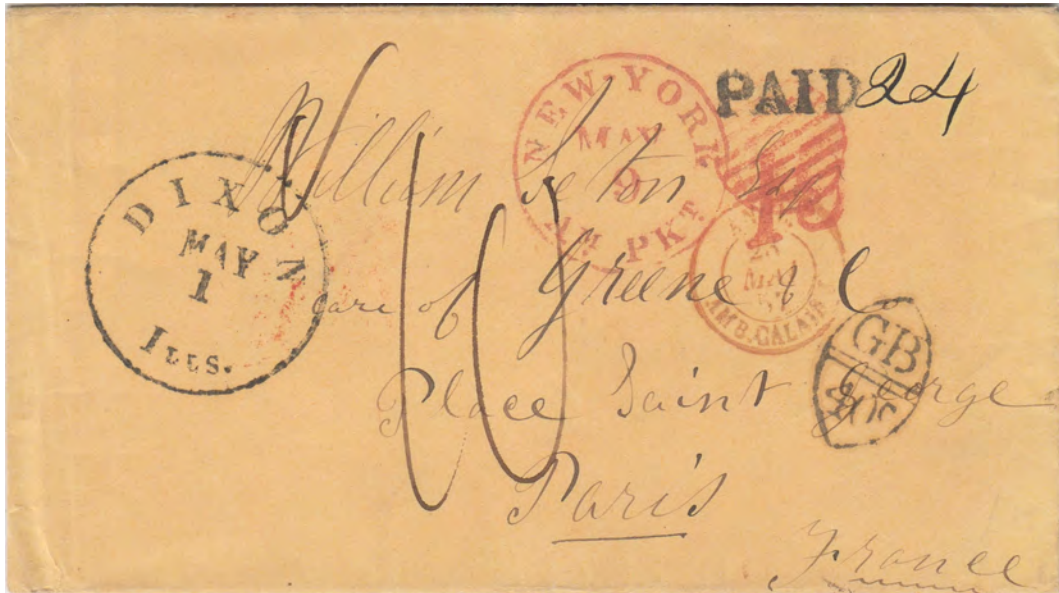 PAID 24
NEW YORK
MAY
9
AM. PKT.
DIXON
MAY
1
ILLS.
William Seton Esq
care of Greene & Co
MAI
AMB. CALAIS
GB
40c
Place Saint George
Paris
France